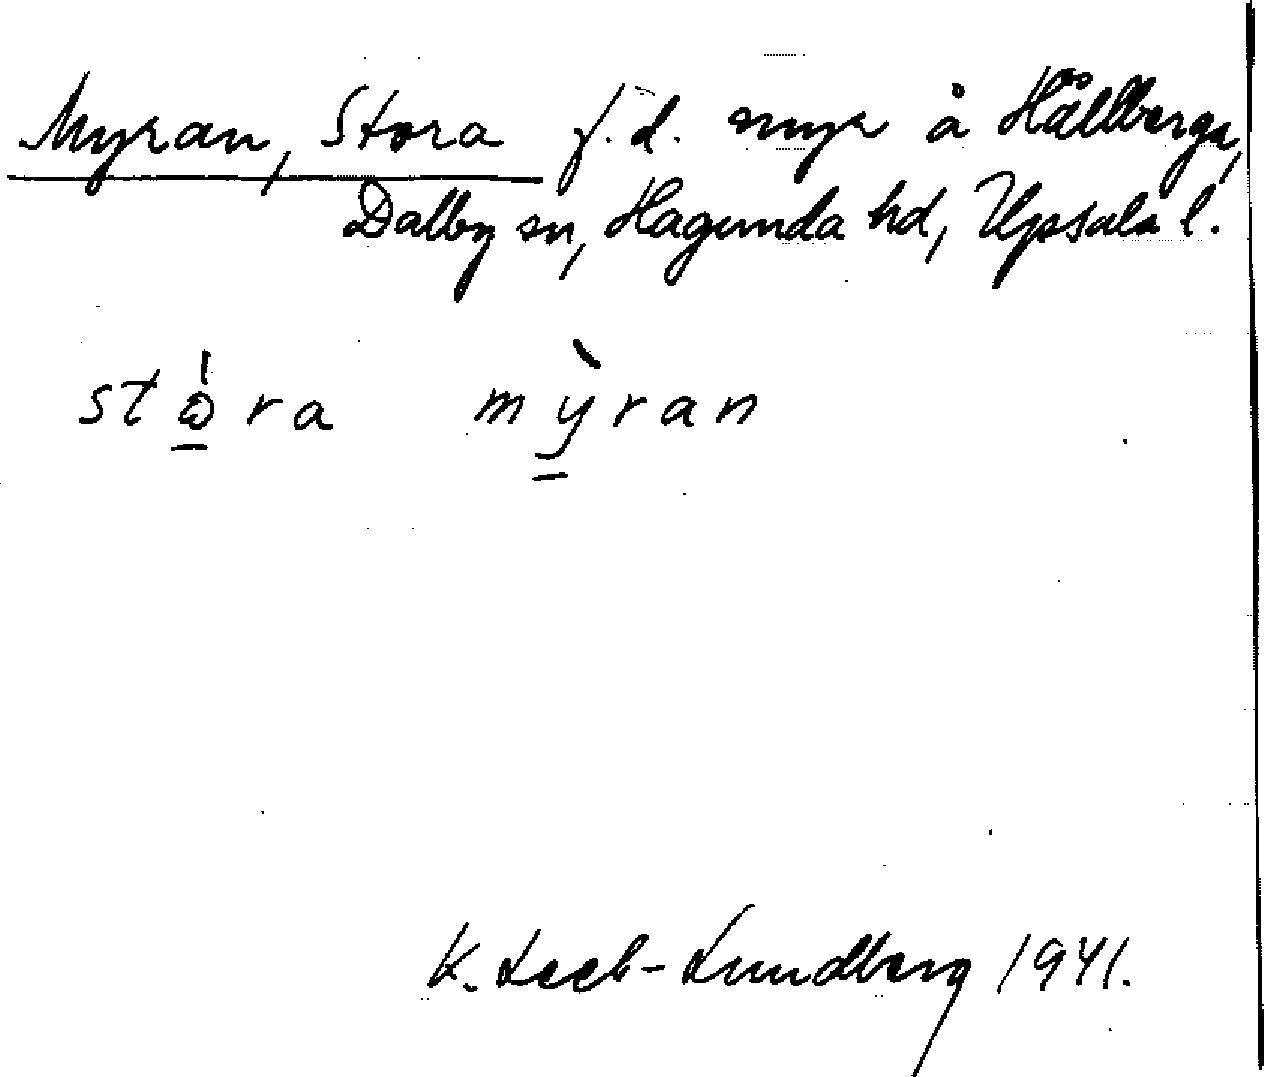 Myran, Stora f.d. myr å Hållberga,
Dalby sn, Hagunda hd, Upsala l.
stώ̲ra mỳ̲ran
K. Leeb-Lundberg 1941.